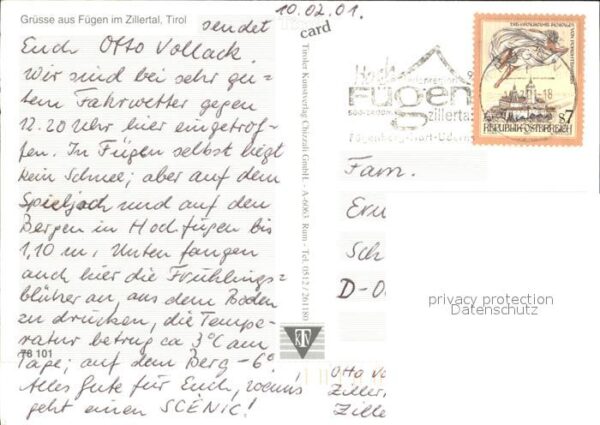 Grüsse aus Fügen im Zillertal, Tirol
10.02.01.
sendet
Euch Otto Vollack.
Wir sind bei sehr gu=
tem Fahrwetter gegen
12.20 Uhr hier eingetrof=
fen. In Fügen selbst liegt
kein Schnee; aber auf dem
Spieljoch und auf den
Bergen in Hochfügen bis
1,10 m. Unten fangen
auch hier die Frühlings=
blüher an, aus dem Boden
zu drücken, die Tempe=
ratur betrug ca 3°C am
Tage; auf dem Berg -6°
Alles Gute für Euch,
geht einen SCÈNIC!
78 101
card
Tiroler Kunstverlag Chizzali GmbH. - A-6063 Rum - Tel. 0512 / 261180
Hoch
Fügen
zillertal
S7
REPUBLIK ÖSTERREICH
Fam.
Sch
D-0
privacy protection
Datenschutz
Otto Vo
Ziller
Zille